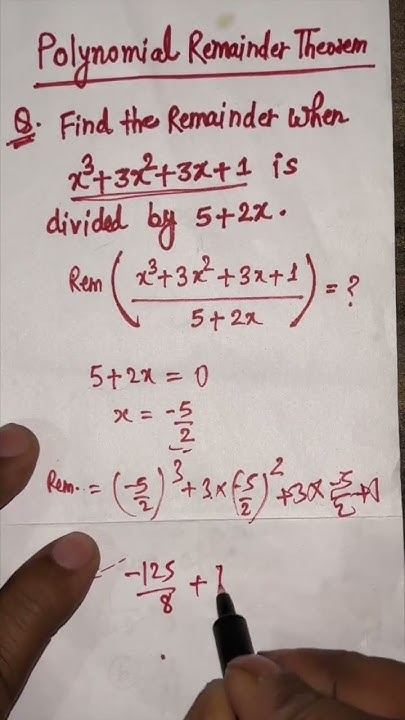 Polynomial Remainder Theorem
Q. Find the Remainder when
x³+3x²+3x+1 is
divided by 5+2x.
Rem (x³+3x²+3x+1 / 5+2x) = ?
5+2x = 0
x = -5/2
Rem. = (-5/2)³+3×(-5/2)²+3×-5/2+1
-125/8 +